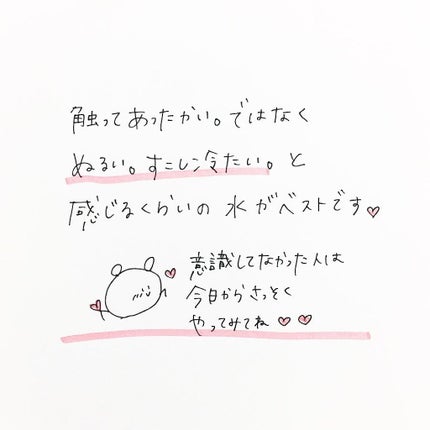 触ってあったかい。ではなく
ぬるい。すこし冷たい。と
感じるくらいの 水がベストです♡
意識してなかった人は
今日からさっそく
やってみてね ♡♡